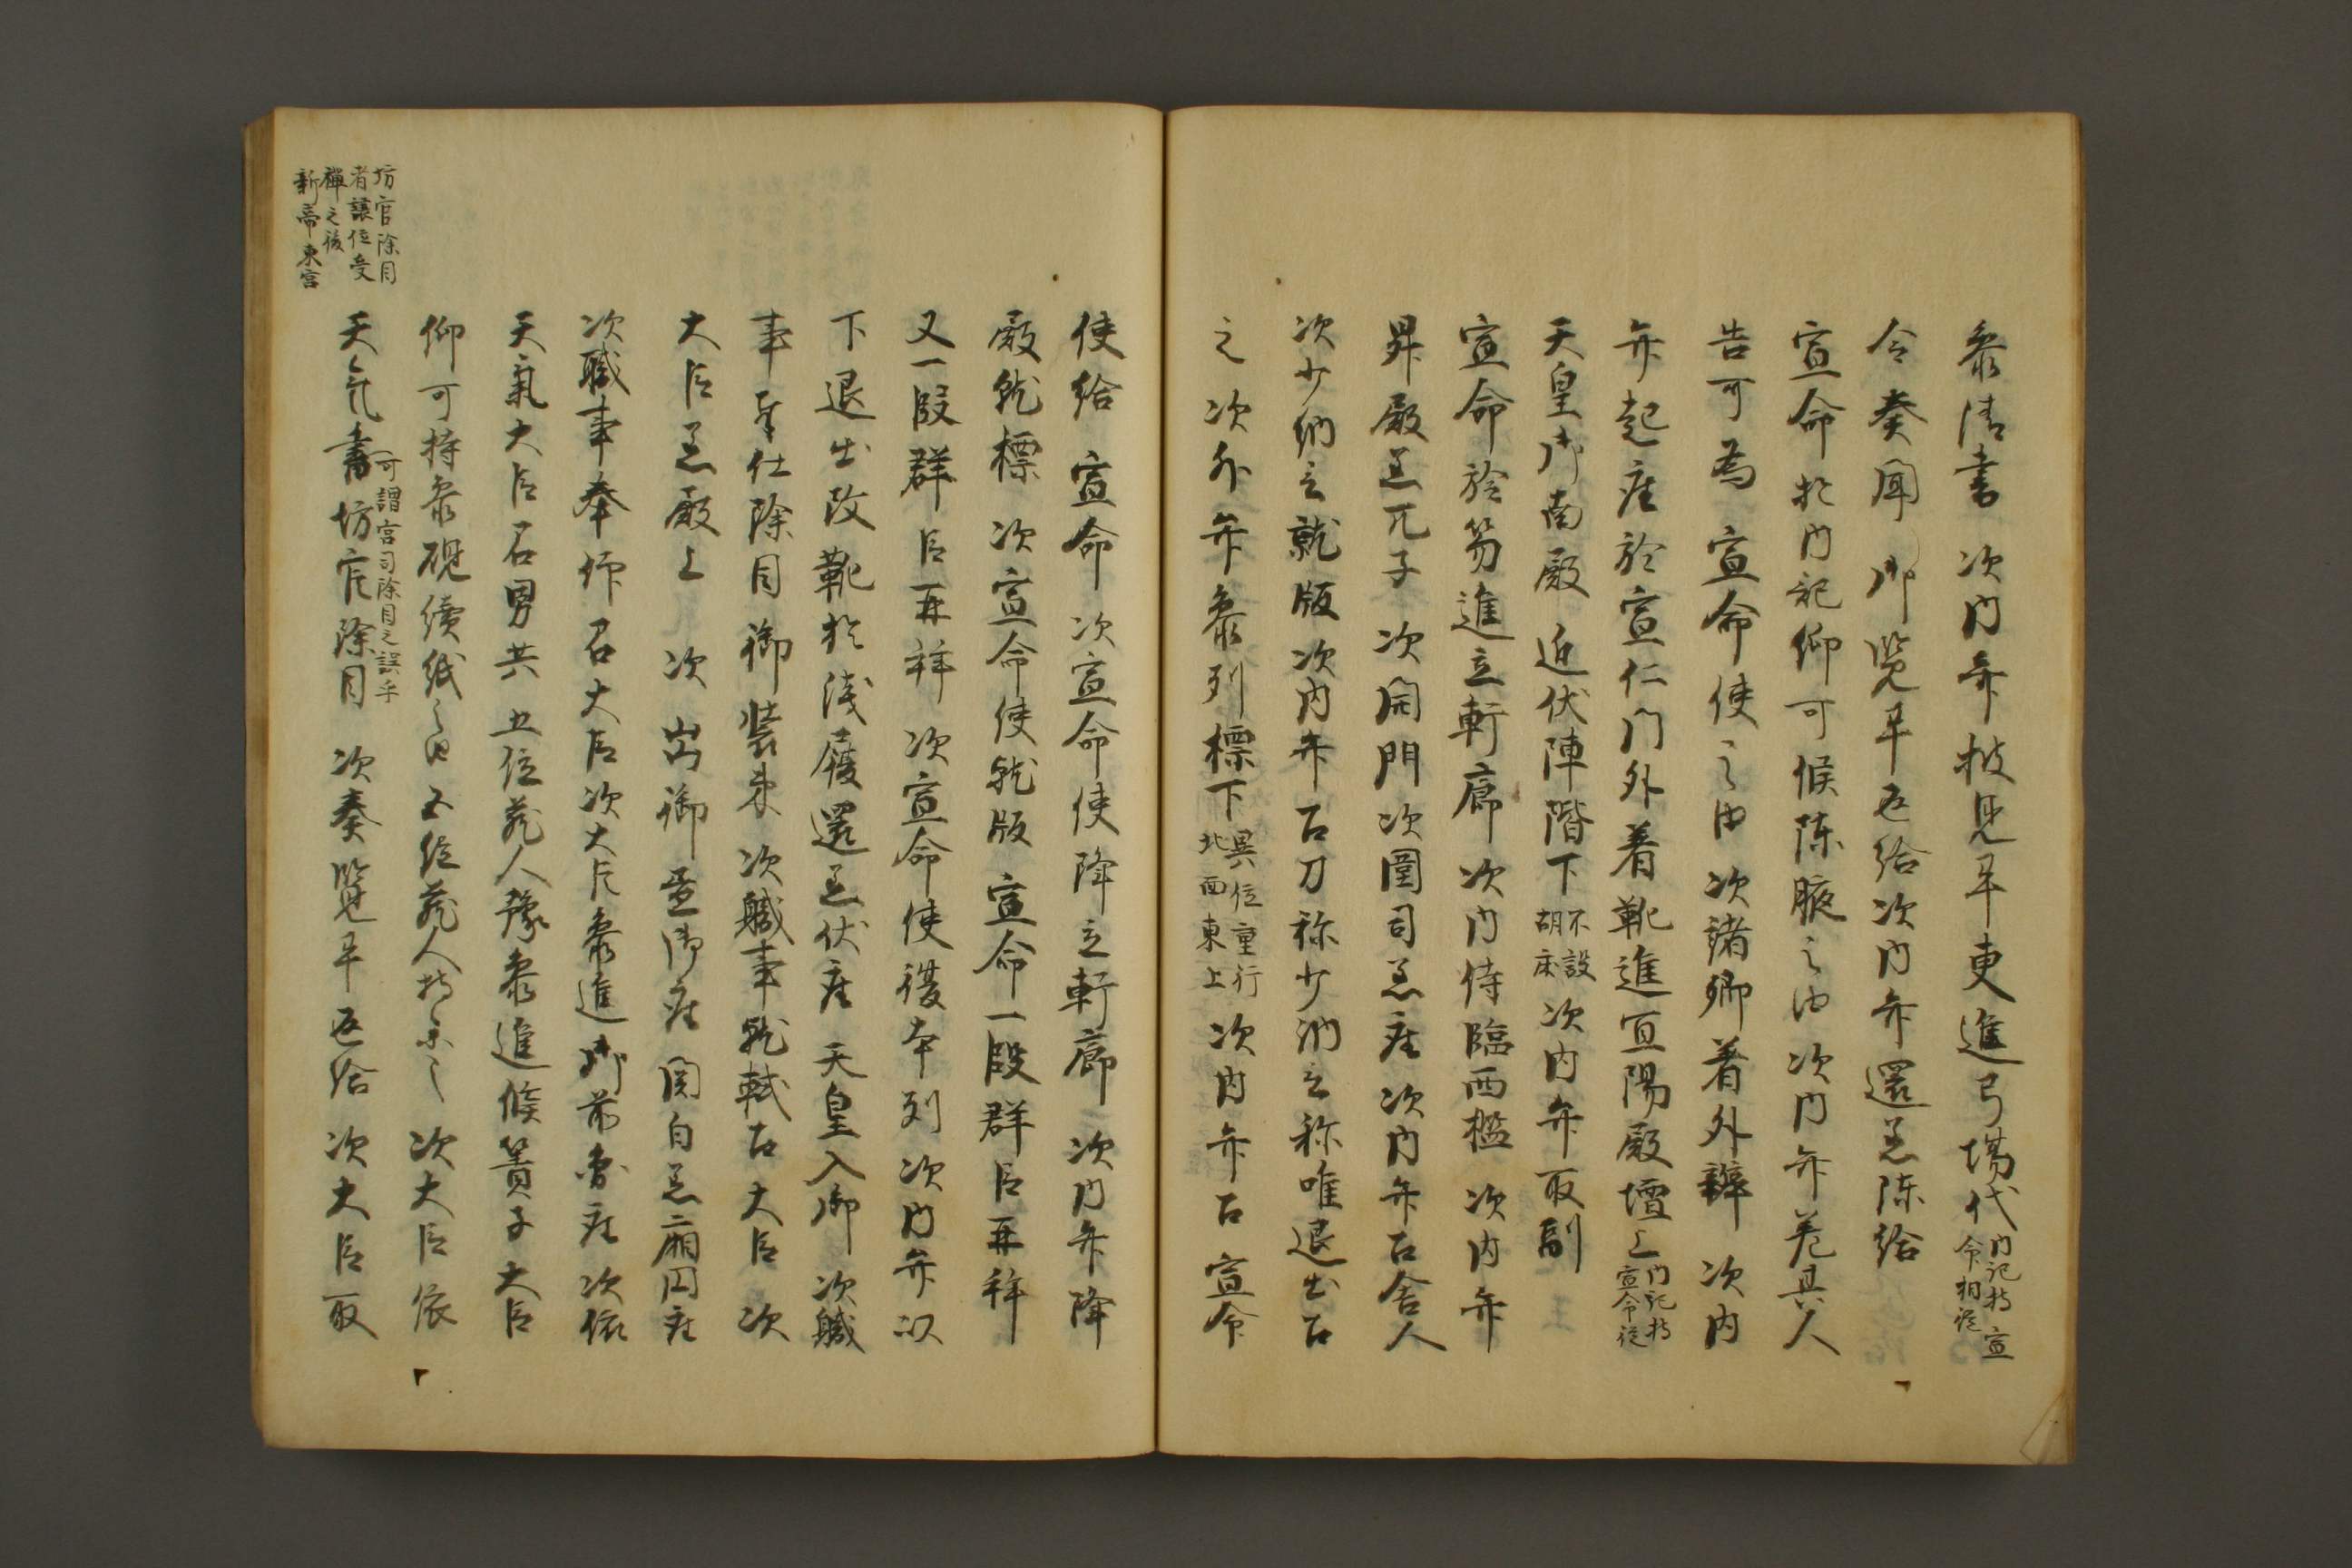 参清書 次内弁披見畢更進弓場代内記持宣
命相從
令奏聞 御覧畢返給次内弁還着陣給
宣命於内記仰可候陣腋之由 次内弁差其人
告可為 宣命使之由 次諸卿着外辨 次内
弁起座於宣仁門外着靴進宜陽殿壇上内記持
宣命従
天皇御南殿 近仗陣階下不設
胡床 次内弁取副
宣命於笏進立軒廊 次内侍臨西檻 次内弁
昇殿着兀子 次開門次闈司着座次内弁召舍人
次少納言就版次内弁召刀祢少納言称唯退出召
之 次外弁参列標下異位重行
北面東上 次内弁召 宣命
使給 宣命 次宣命使降立軒廊 次内弁降
殿就標 次宣命使就版 宣命一段群臣再拝
又一段群臣再拝 次宣命使復本列 次内弁以
下退出改靴於浅履還着仗座 天皇入御 次職
事奉仕除目御装束 次職事就軾召大臣 次
大臣着殿上 次 出御昼御座 関白着廂円座
次職事奉仰召大臣次大臣参進御前着座次依
天氣大臣召男共 五位蔵人豫参進候簀子大臣
仰可持参硯續紙之由五位蔵人持参之 次大臣依
天気書坊官除目 次奏覧畢返給 次大臣取
可謂宮司除目之誤乎
坊官除目
者譲位受
禅之後
新帝東宮